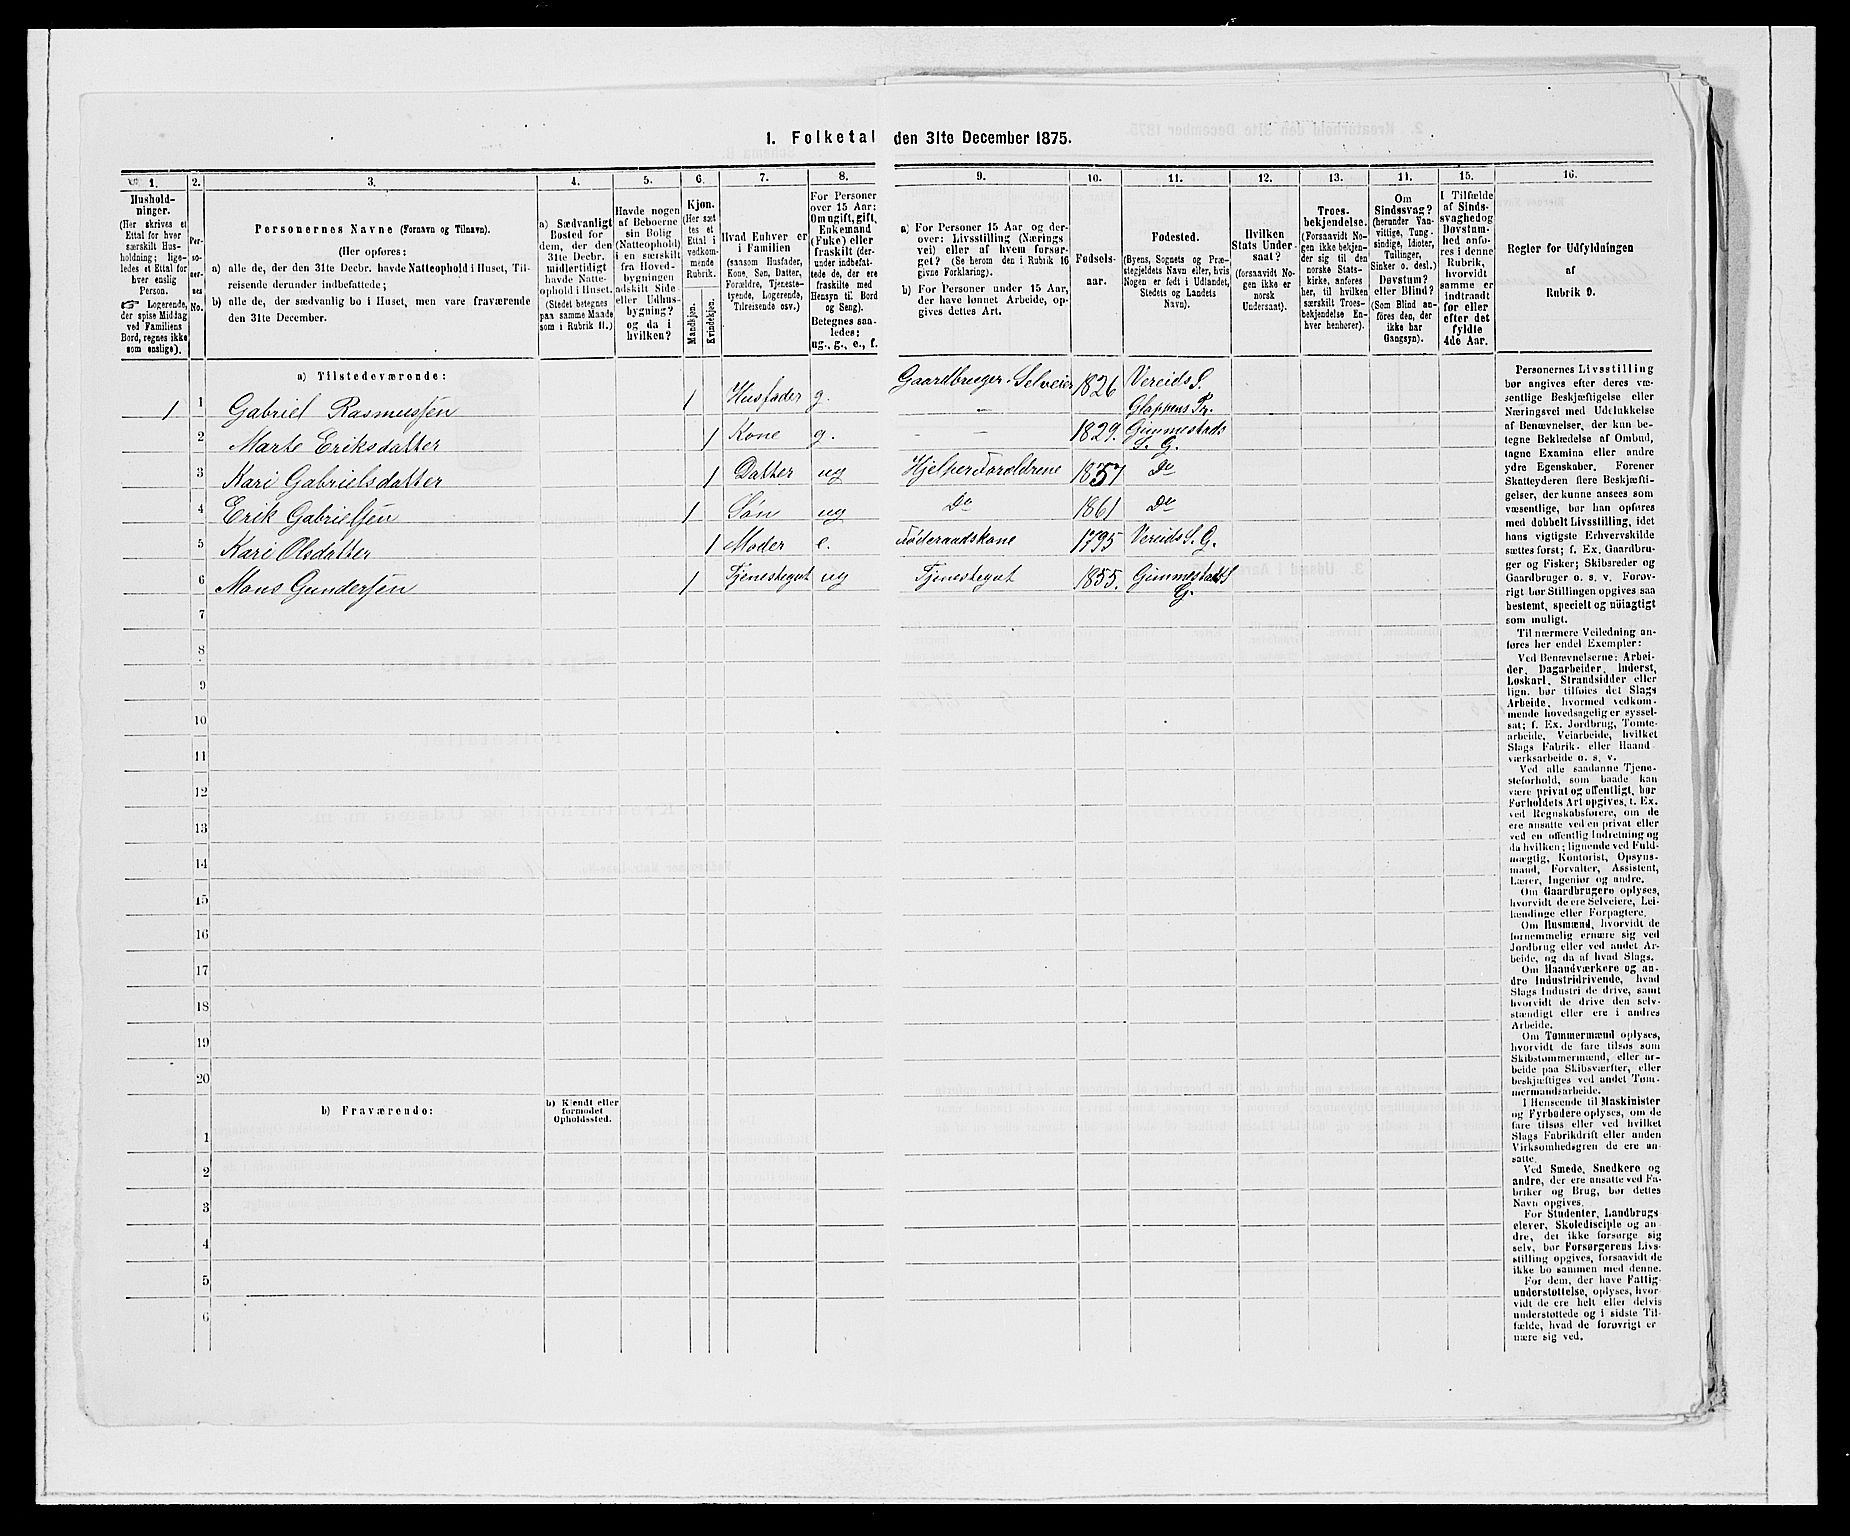 1. Folketal den 31te December 1875.
1.
2.
3.
4.
5.
6.
7.
8.
9.
10.
11.
12.
13.
14.
15.
16.
Husholdninger.
(Her skrives et
Ettal for hver
særskilt Husholdning; ligeledes et Ettal for
enhver enslig
Person.
☞ Logerende,
der spise Middag
ved Familiens
Bord, regnes ikke
som enslige).
Personernes No.
Personernes Navne (Fornavn og Tilnavn).
(Her opføres:
a) alle de, der den 31te Decbr. havde Natteophold i Huset, Tilreisende derunder indbefattede;
b) alle de, der sædvanlig bo i Huset, men vare fraværende
den 31te December.
a) Sædvanligt
Bosted for
dem, der den
31te Decbr.
midlertidigt
havde Natteophold i Huset.
(Stedet betegnes
paa samme Maade
som i Rubrik 11.)
Havde nogen
af Beboerne
sin Bolig
(Natteophold)
i en særskilt
fra Hovedbygningen
adskilt Side
eller Udhusbygning?
og da i
hvilken?
Kjøn.
(Her sæt
tes et
Ettal i
vedkommende
Rubrik.
Mandkjøn.
Kvindekjøn.
Hvad Enhver er
i Familien
(saasom Husfader,
Kone, Søn, Datter,
Forældre, Tjenestetyende, Logerende,
Tilreisende osv.)
For Personer
over 15 Aar:
Om ugift, gift,
Enkemand
(Fuke) eller
fraskilt (derunder indbefattede de, der ere
fraskilte med
Hensyn til Bord
og Seng).
Betegnes saaledes:
ug., g., e., f.
a) For Personer 15 Aar og derover: Livsstilling (Nærings
vei) eller af hvem forsørget? (Se herom den i Rubrik 16
givne Forklaring).
b) For Personer under 15 Aar,
der have lønnet Arbeide, opgives dettes Art.
Fødselsaar.
Fødested.
(Byens, Sognets og Præstegjeldets Navn eller, hvis
Nogen er født i Udlandet,
Stedets og Landets
Navn).
Hvilken
Stats Undersaat?
(forsaavidt Nogen ikke er
norsk
Undersaat).
Troesbekjendelse.
(Forsaavidt Nogen ikke bekjender sig til den
norske Statskirke, anføres
her, til hvilken
særskilt Troesbekjendelse Enhver henhører).
Om
Sindssvag?
(herunder Vanvittige, Tungsindige, Idioter,
Tullinger,
Sinker o. desl.)
Døvstum?
eller Blind?
(Som Blind anføres den, der
ikke har
Gangsyn).
I Tilfælde
af Sindssvaghed og
Døvstumhed anføres i denne
Rubrik,
hvorvidt
samme er
indtraadt
før eller
efter det
fyldte
4de Aar.
Regler for Udfyldningen
af
Rubrik 9.
a) Tilstedeværende:
1 1 Gabriel Rasmussen 1 Husfader g. Gaardbruger - Selveier 1826 Vereids S. Gloppens Pr.
2 Marte Eriksdatter 1 Kone g. — — 1829. Gimmestads S. G.
3 Kari Gabrielsdatter 1 Datter ug Hjelper Forældrene 1857 Do
4 Erik Gabrielsen 1 Søn ug Do 1861 Do
5 Kari Olsdatter 1 Moder e. Føderaadskone 1795 Vereids S. G.
6 Mons Gundersen 1 Tjenestegut ug Tjenestegut 1855. Gimmestad S G.
7
8
9
10
11
12
13
14
15
16
17
18
19
20
b) Fraværende:
b) Kjendt eller
formodet
Opholdssted.
1
2
3
4
5
6
Personernes Livsstilling
bør angives efter deres væsentlige Beskjæftigelse eller
Næringsvei med Udelukkelse
af Benævnelser, der kun betegne Beklædelse af Ombud,
tagne Examina eller andre
ydre Egenskaber. Forener
Skatteyderen flere Beskjæftigelser, der kunne ansees som
væsentlige, bør han opføres
med dobbelt Livsstilling, idet
hans vigtigste Erhvervskilde
sættes først; f. Ex. Gaardbruger og Fisker; Skibsreder og
Gaardbruger o. s. v. Forøvrigt bør Stillingen opgives saa
bestemt, specielt og nöiagtigt
som muligt.
Til nærmere Veiledning anføres her endel Exempler:
Ved Benævnelserne: Arbeider, Dagarbeider, Inderst,
Løskarl, Strandsidder eller
lign. bør tilføies det Slags
Arbeide, hvormed vedkommende hovedsagelig er sysselsat; f. Ex. Jordbrug, Tomtearbeide, Veiarbeide, hvilket
Slags Fabrik- eller Haandværksarbeide o. s. v.
Ved alle saadanne Tjenesteforhold, som baade kan
være privat og offentligt, bør
Forholdets Art opgives, t. Ex.
ved Regnskabsførere, om de
ere ansatte ved en privat eller
ved en offentlig Indretning og
da hvilken; lignende ved Fuldmægtig, Kontorist, Opsynsmand, Forvalter, Assistent,
Lærer, Ingeniør og andre.
Om Gaardbrugere oplyses,
hvorvidt de ere Selveiere, Leilændinge eller Forpagtere.
Om Husmænd, hvorvidt de
fornemmelig ernære sig ved
Jordbrug eller ved andet Arbeide, og da af hvad Slags.
Om Haandværkere og andre Industridrivende, hvad
Slags Industri de drive, samt
hvorvidt de drive den selvstændigt eller ere i andres
Arbeide.
Om Tømmermænd oplyses,
hvorvidt de fare tilsøs som
Skibstømmermænd, eller arbeide paa Skibsværfter, eller
beskjæftiges ved andet Tømmermandsarbeide.
I Henseende til Maskinister
og Fyrbødere oplyses, om de
fare tilsøs eller ved hvilket
Slags Fabrikdrift eller anden
Virksomhedsgren de ere ansatte.
Ved Smede, Snedkere og
andre, der ere ansatte ved Fabriker og Brug, bør dettes
Navn opgives.
For Studenter, Landbrugselever, Skoledisciple og andre, der ikke forsørge sig
selv, bør Forsørgerens Livsstilling opgives, forsaavidt de
ikke bo sammen med denne.
For dem, der have Fattigunderstøttelse, oplyses, hvorvidt de ere helt eller delvis
understøttede og i sidste Tilfælde, hvad de forøvrigt ernære sig ved.